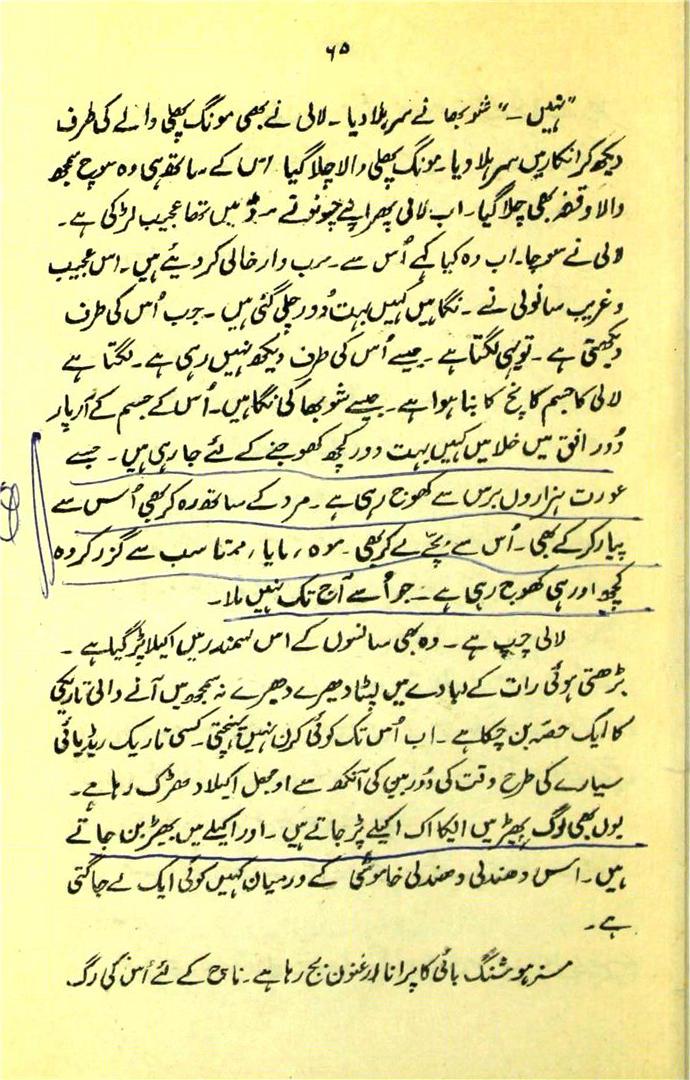 ۶۵
”نہیں۔“ شوبھا نے سر ہلا دیا۔ لالی نے بھی مونگ پھلی والے کی طرف
دیکھ کر انکار میں سر ہلا دیا۔ مونگ پھلی والا چلا گیا اس کے ساتھ ہی وہ سوچ سمجھ
والا وقفہ بھی چلا گیا۔ اب لالی پھر اپنے چونوتے موڈ میں تھا عجیب لڑکی ہے۔
لالی نے سوچا۔ اب وہ کیا کہے اُس سے۔ سب وار خالی کر دیئے ہیں۔ اس عجیب
و غریب سانولی نے۔ نگاہیں کہیں بہت دُور چلی گئی ہیں۔ جب اُس کی طرف
دیکھتی ہے۔ تو یہی لگتا ہے۔ جیسے اُس کی طرف دیکھ نہیں رہی ہے۔ لگتا ہے
لالی کا جسم کانچ کا بنا ہوا ہے۔ جیسے شوبھا کی نگاہیں۔ اُس کے جسم کے آر پار
دُور افق میں خلا میں کہیں بہت دور کچھ کھوجنے کے لئے جا رہی ہیں۔ جسے
عورت ہزاروں برس سے کھوج رہی ہے۔ مرد کے ساتھ رہ کر بھی اُس سے
پیار کر کے بھی۔ اُس سے بچّے لے کر بھی۔ موہ، مایا، ممتا سب سے گزر کر وہ
کچھ اور ہی کھوج رہی ہے۔ جو اُسے آج تک نہیں ملا۔
لالی چپ ہے۔ وہ بھی سانسوں کے اس سمندر میں اکیلا پڑ گیا ہے۔
بڑھتی ہوئی رات کے لبادے میں لپٹا دھیرے دھیرے نہ سمجھ میں آنے والی تاریکی
کا ایک حصّہ بن چکا ہے۔ اب اُس تک کوئی کرن نہیں پہنچتی۔ کسی تاریک ریڈیائی
سیارے کی طرح وقت کی دُوربین کی آنکھ سے اوجھل اکیلا دھڑک رہا ہے۔
یوں بھی لوگ بھیڑ میں ایکا اک اکیلے پڑ جاتے ہیں۔ اور اکیلے میں بھیڑ بن جاتے
ہیں۔ اس دھندلی دھندلی خاموشی کے درمیان کہیں کوئی ایک لے جاگتی
ہے۔
مسز ہوشنگ بائی کا پرانا ارغنون بج رہا ہے۔ ناچ کے لئے اُس کی رگ